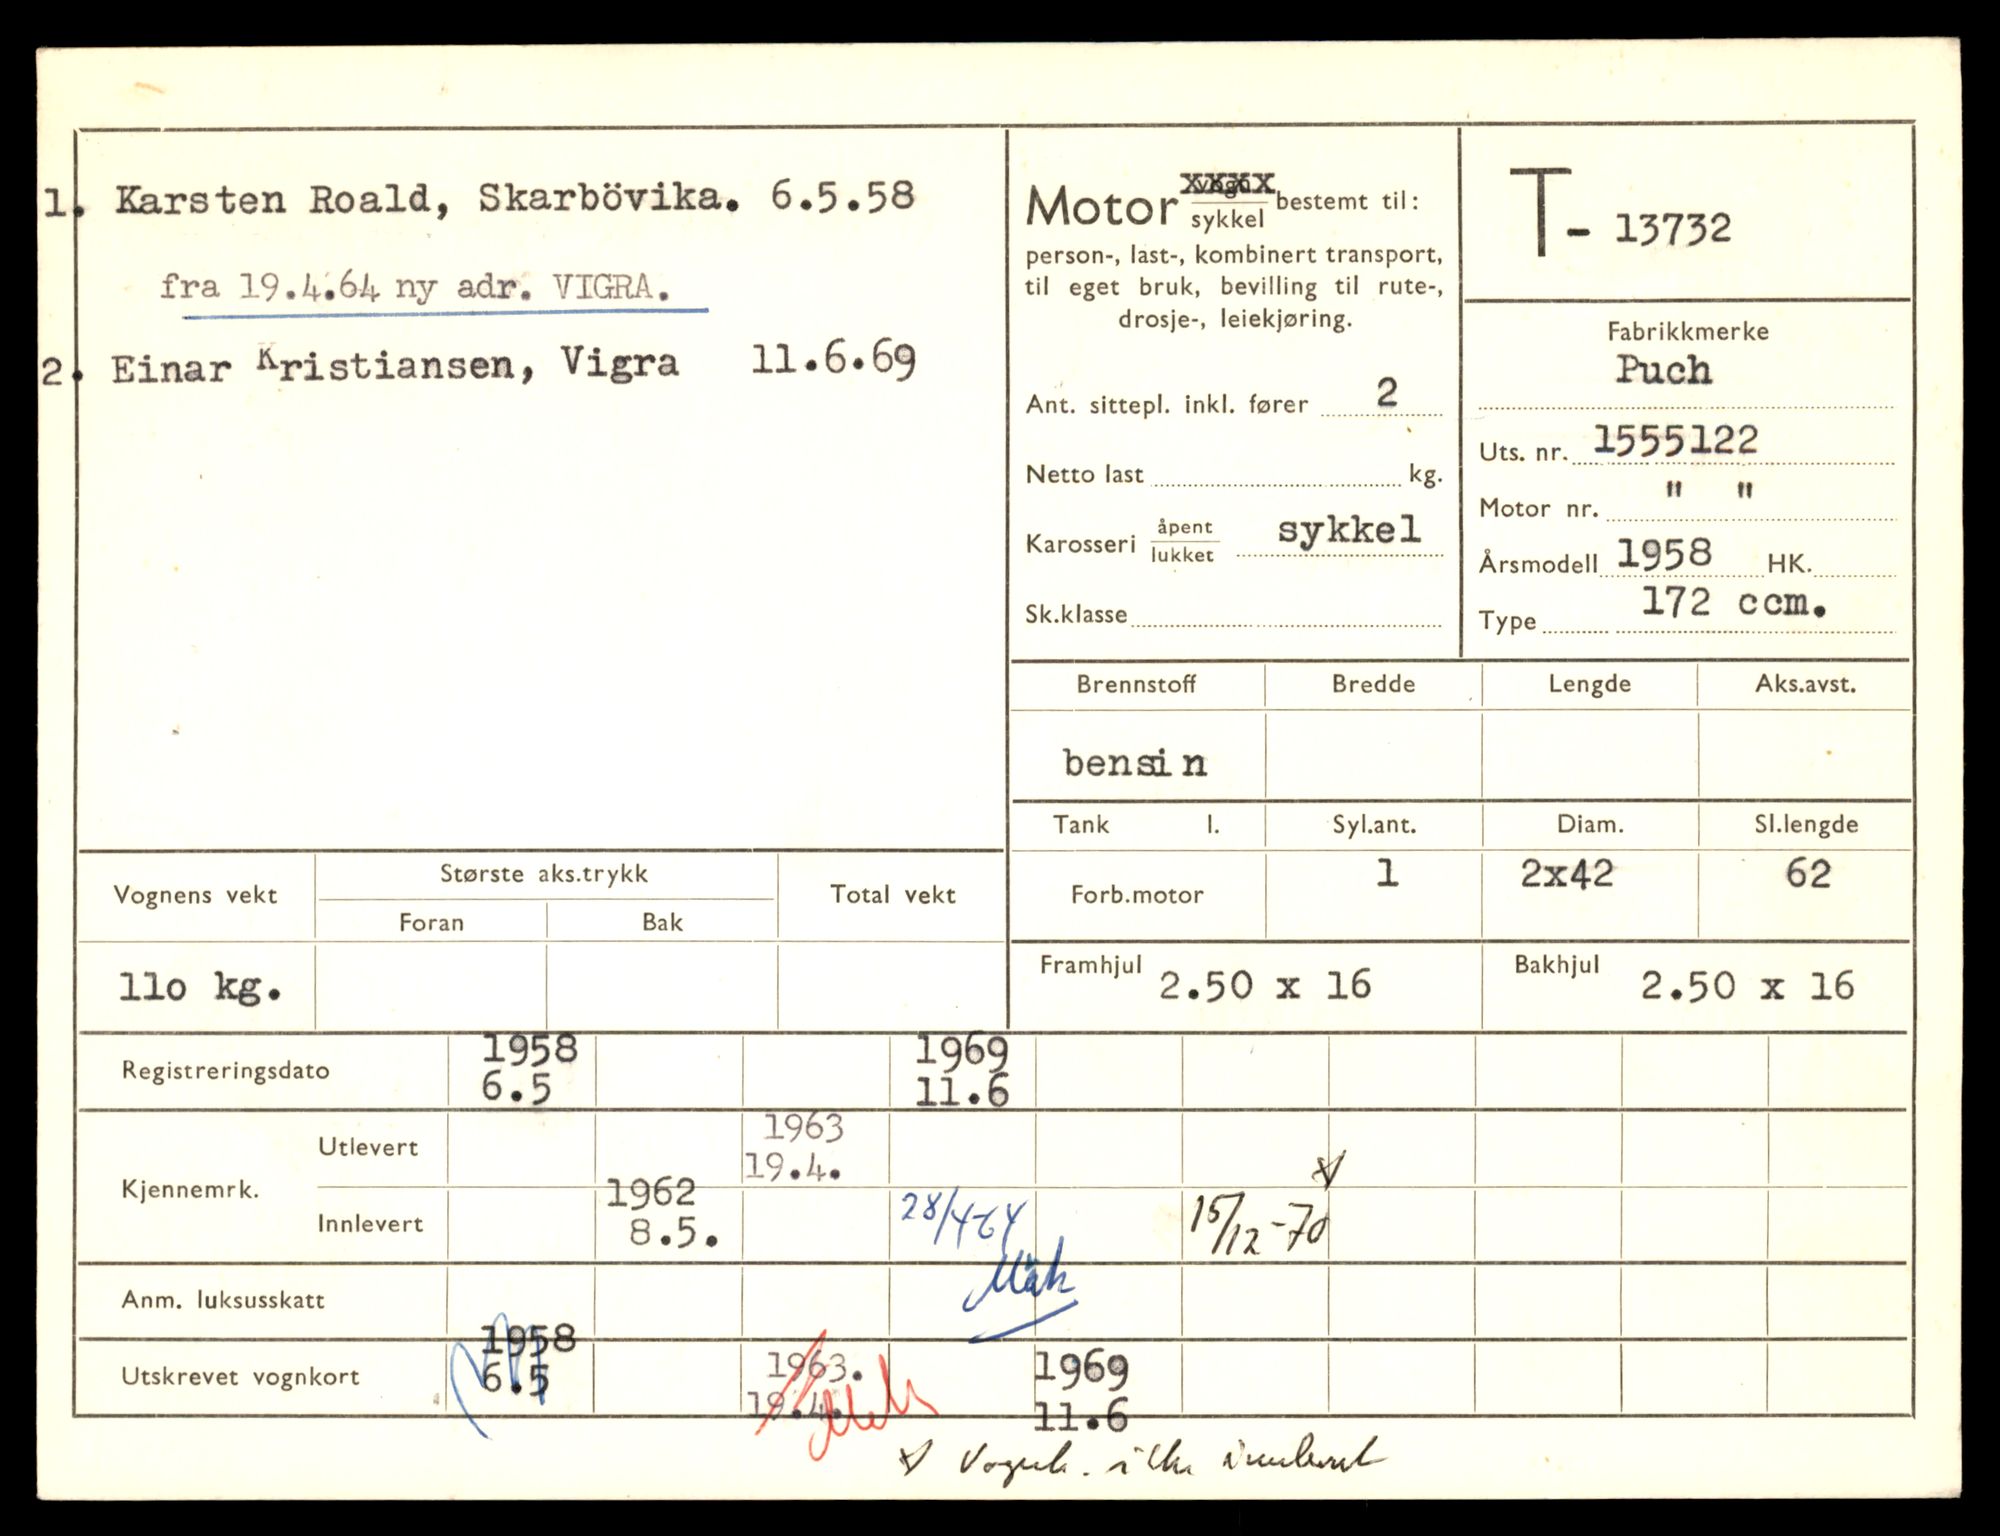 1. Karsten Roald, Skarbövika. 6.5.58
fra 19.4.64 ny adr. VIGRA.
2. Einar Kristiansen, Vigra 11.6.69
Motor vogn/sykkel bestemt til:
person-, last-, kombinert transport,
til eget bruk, bevilling til rute-,
drosje-, leiekjøring.
Ant. sittepl. inkl. fører 2
Netto last kg.
Karosseri åpent/lukket sykkel
Sk.klasse
T- 13732
Fabrikkmerke
Puch
Uts. nr. 1555122
Motor nr. " "
Årsmodell 1958 HK.
Type 172 ccm.
Brennstoff Bredde Lengde Aks.avst.
bensin
Tank l. Syl.ant. Diam. Sl.lengde
Forb.motor 1 2x42 62
Framhjul 2.50 x 16 Bakhjul 2.50 x 16
Vognens vekt Største aks.trykk Total vekt
Foran Bak
110 kg.
Registreringsdato 1958 6.5 1969 11.6
Kjennemrk.
Utlevert 1963 19.4.
Innlevert 1962 8.5. 28/4-64 15/12-70 x)
Anm. luksusskatt
Utskrevet vognkort 1958 6.5 1963. 19.4. 1969 11.6
x) Vognk. ikke innlevert